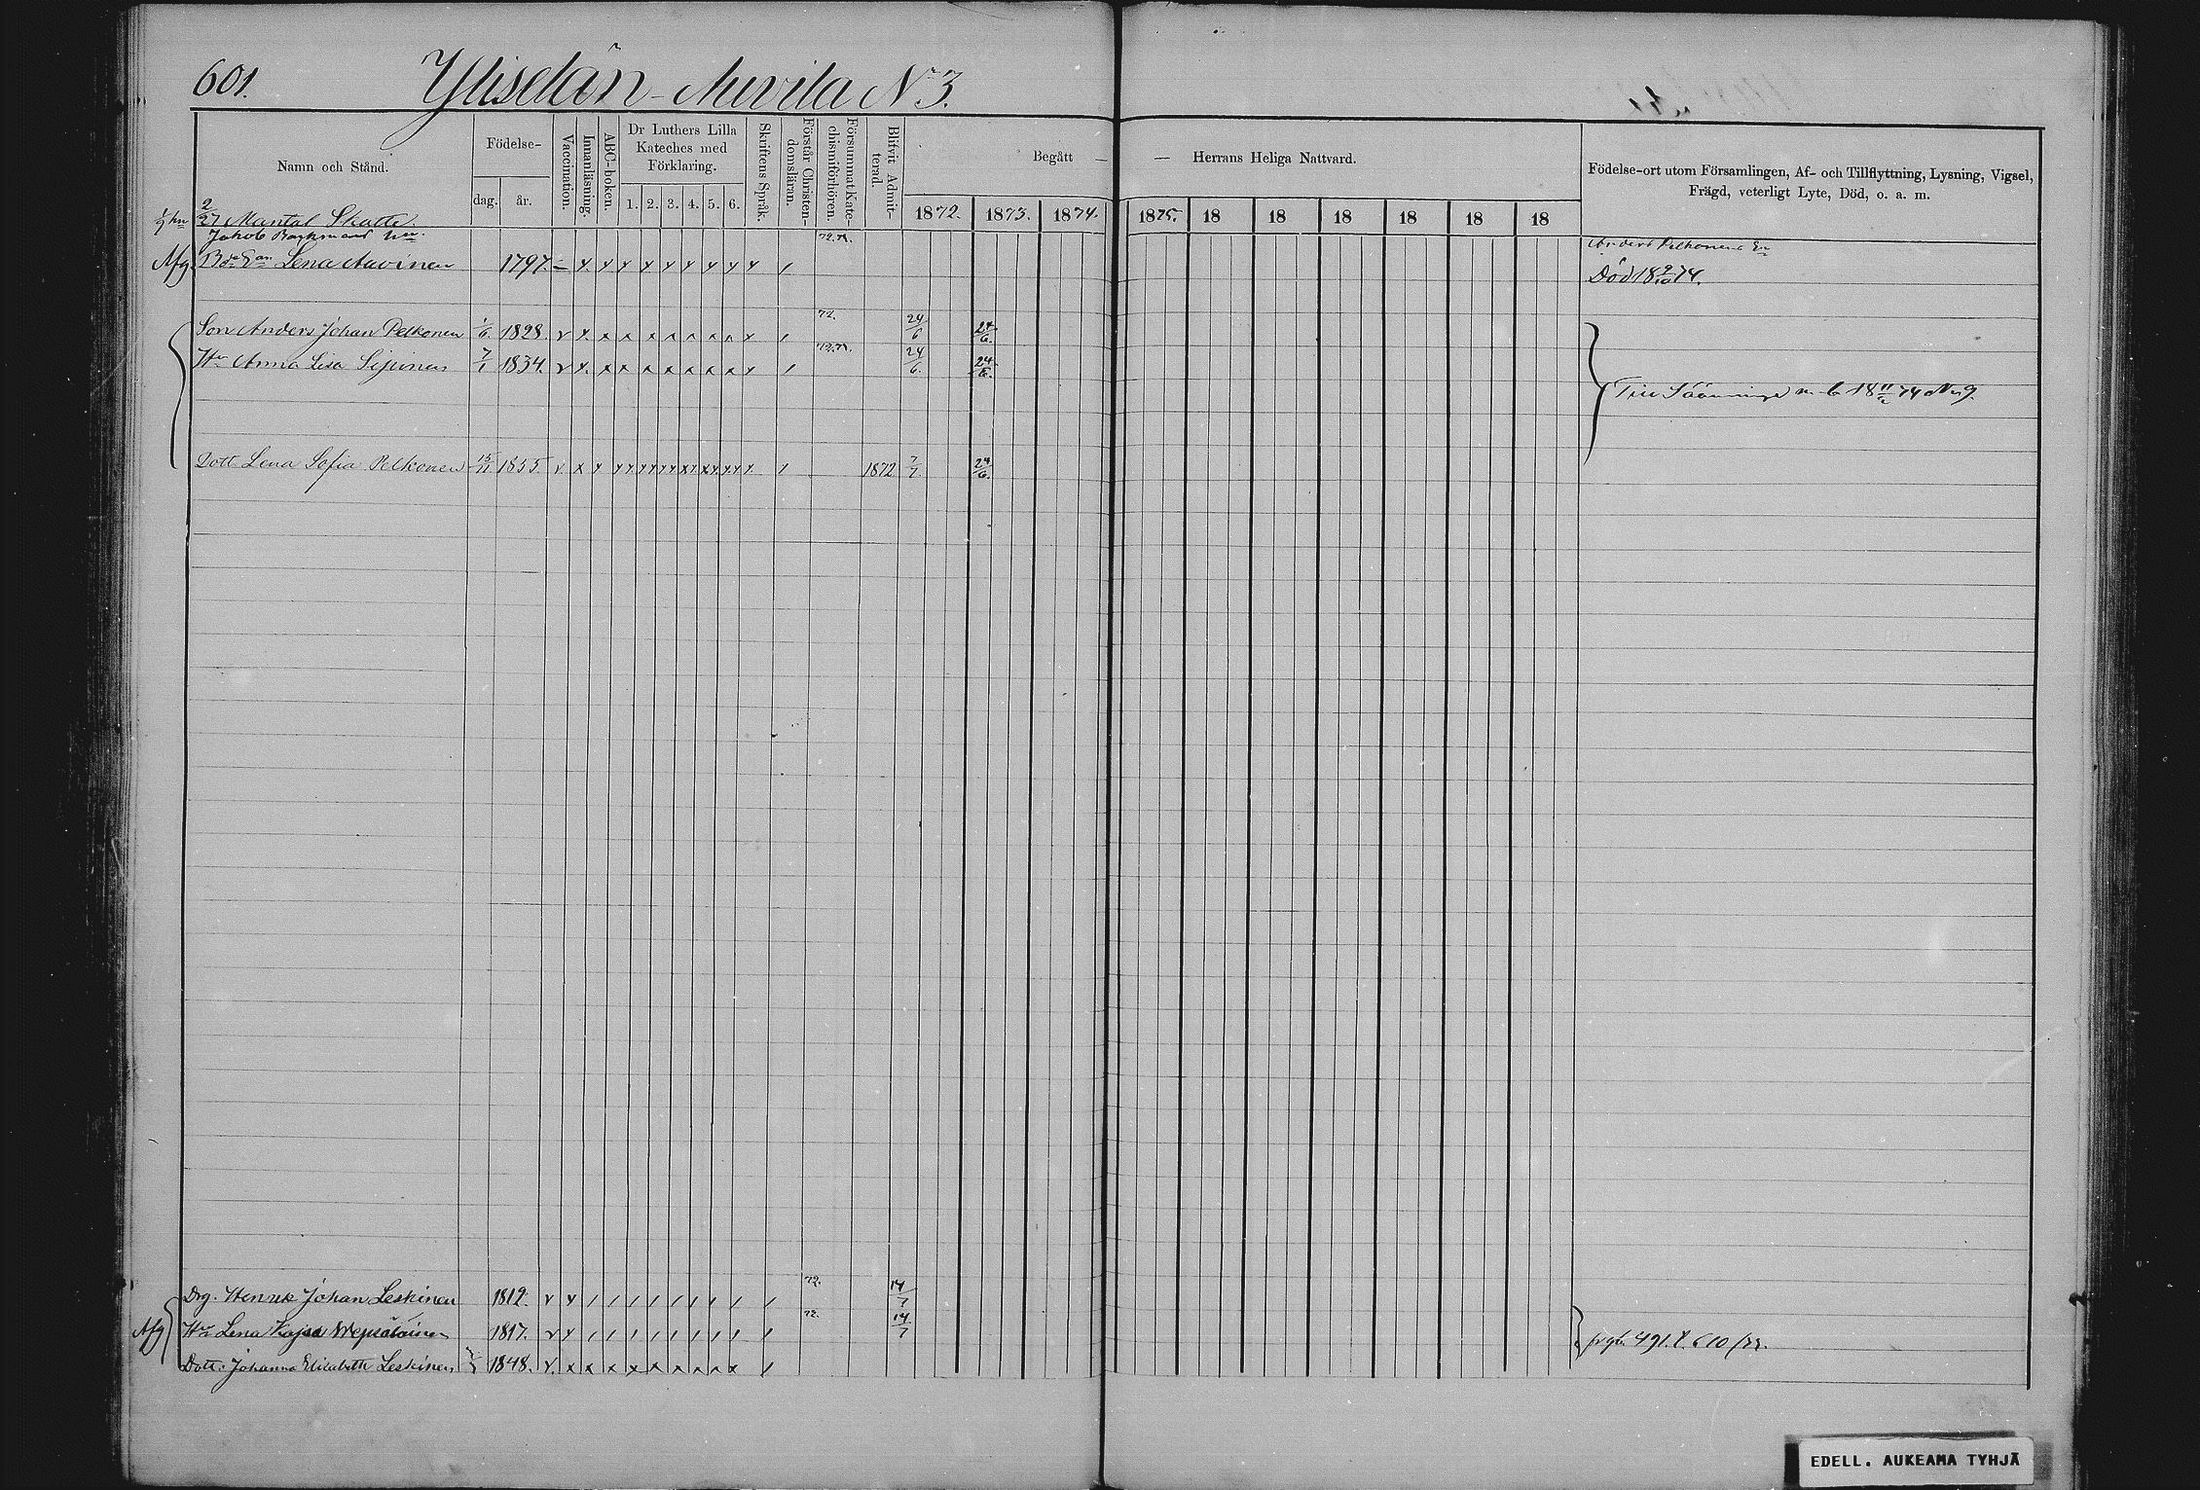 601. Yliselän - Auvila No 3.
Namn och Stånd.
Födelse-
dag. år.
Vaccination.
Innanläsning.
ABC-boken.
Dr Luthers Lilla
Kateches med
Förklaring.
1. 2. 3. 4. 5. 6.
Skriftens Språk.
Förstår Christen-
domsläran.
Försummat Kate-
chismiförhören.
Blifvit Admit-
terad.
Begått — — Herrans Heliga Nattvard.
1872. 1873. 1874. 1875. 18 18 18 18 18 18
Födelse-ort utom Församlingen, Af- och Tillflyttning, Lysning, Vigsel,
Frägd, veterligt Lyte, Död, o. a. m.
2/27 Mantal Skatte
Jakob
Anders Pelkonens
Afg Lena Auvinen 1797.
Död 18 9/10 74.
Son Anders Johan Pelkonen 1/6 1828. v 72. 24/6 24/6.
Hu Anna Lisa Sipinen 7/1 1834. v 24/6. 24/6.
Till m. b. 18 74 No 9.
Dott. Lena Sofia Pelkonen 15/11 1855. v 1872 7/7. 24/6.
Drg. Henrik Johan Leskinen 1812. v 72. 14/7
Afg Hu Lena Kajsa Wepsäläinen 1817. v 72. 14/7
491. t. 610/72.
Dott. Johanna Elisabeth Leskinen 1848. v
EDELL. AUKEAMA TYHJÄ